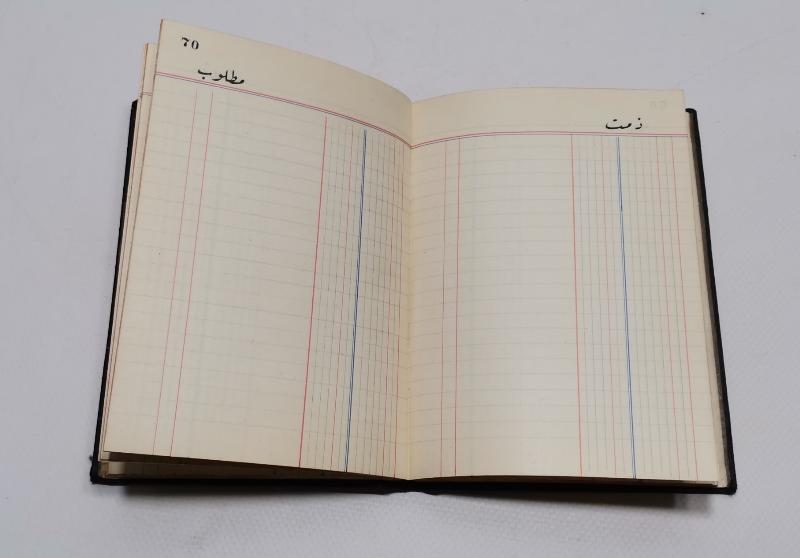 70
مطلوب
ذمت